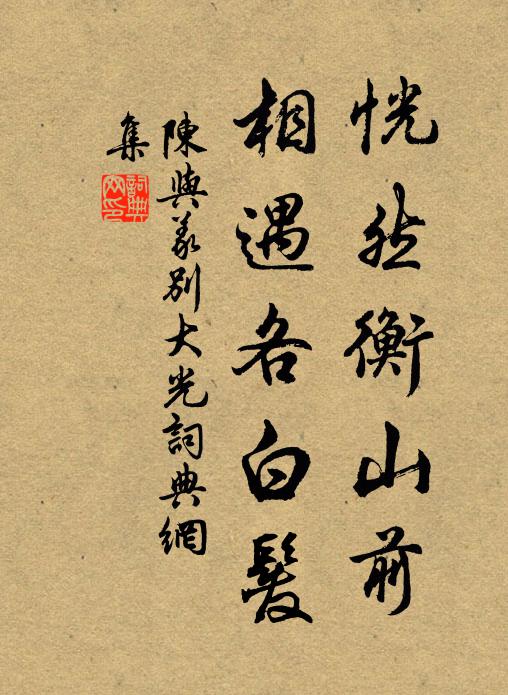 恍然衡山前
相遇各白髮
陳與義別大光詞典網
集
詞典
网印